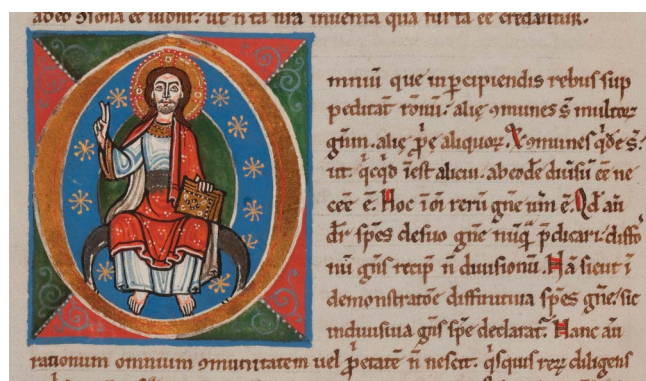 adeo ꝯsona ee iudini: ut n ta nra inventa qua nrista ee credantur.
mniū que in ꝑcipiendis rebus sup
peditāt rōnū: alię ꝯmunes s̄ multoꝝ
gn̄ꝝ. alię ꝓp̄e aliquoꝝ. ꝯmunes q̇dē s̄:
ut q̇cq̇d īest alicui. ab eodē diuisū eē ne
cēē ē. Hoc ī oī rerū gn̄e uīm ē. Qd̄ aū
dr̄ sp̄es de suo gn̄e nūq̄ p̄dicari. diffō
nū gn̄is recip̄ n̄ diuisionū. Nā sicut ī
demonstratōe diffinitiua sp̄es gn̄e. sic
indiuisiua gn̄s sp̄e declarat̄. Hanc aū
rationum omnium ꝯmunitatem uel ꝓp̄etatē n̄ nescit. q̇squis reꝝ diligens